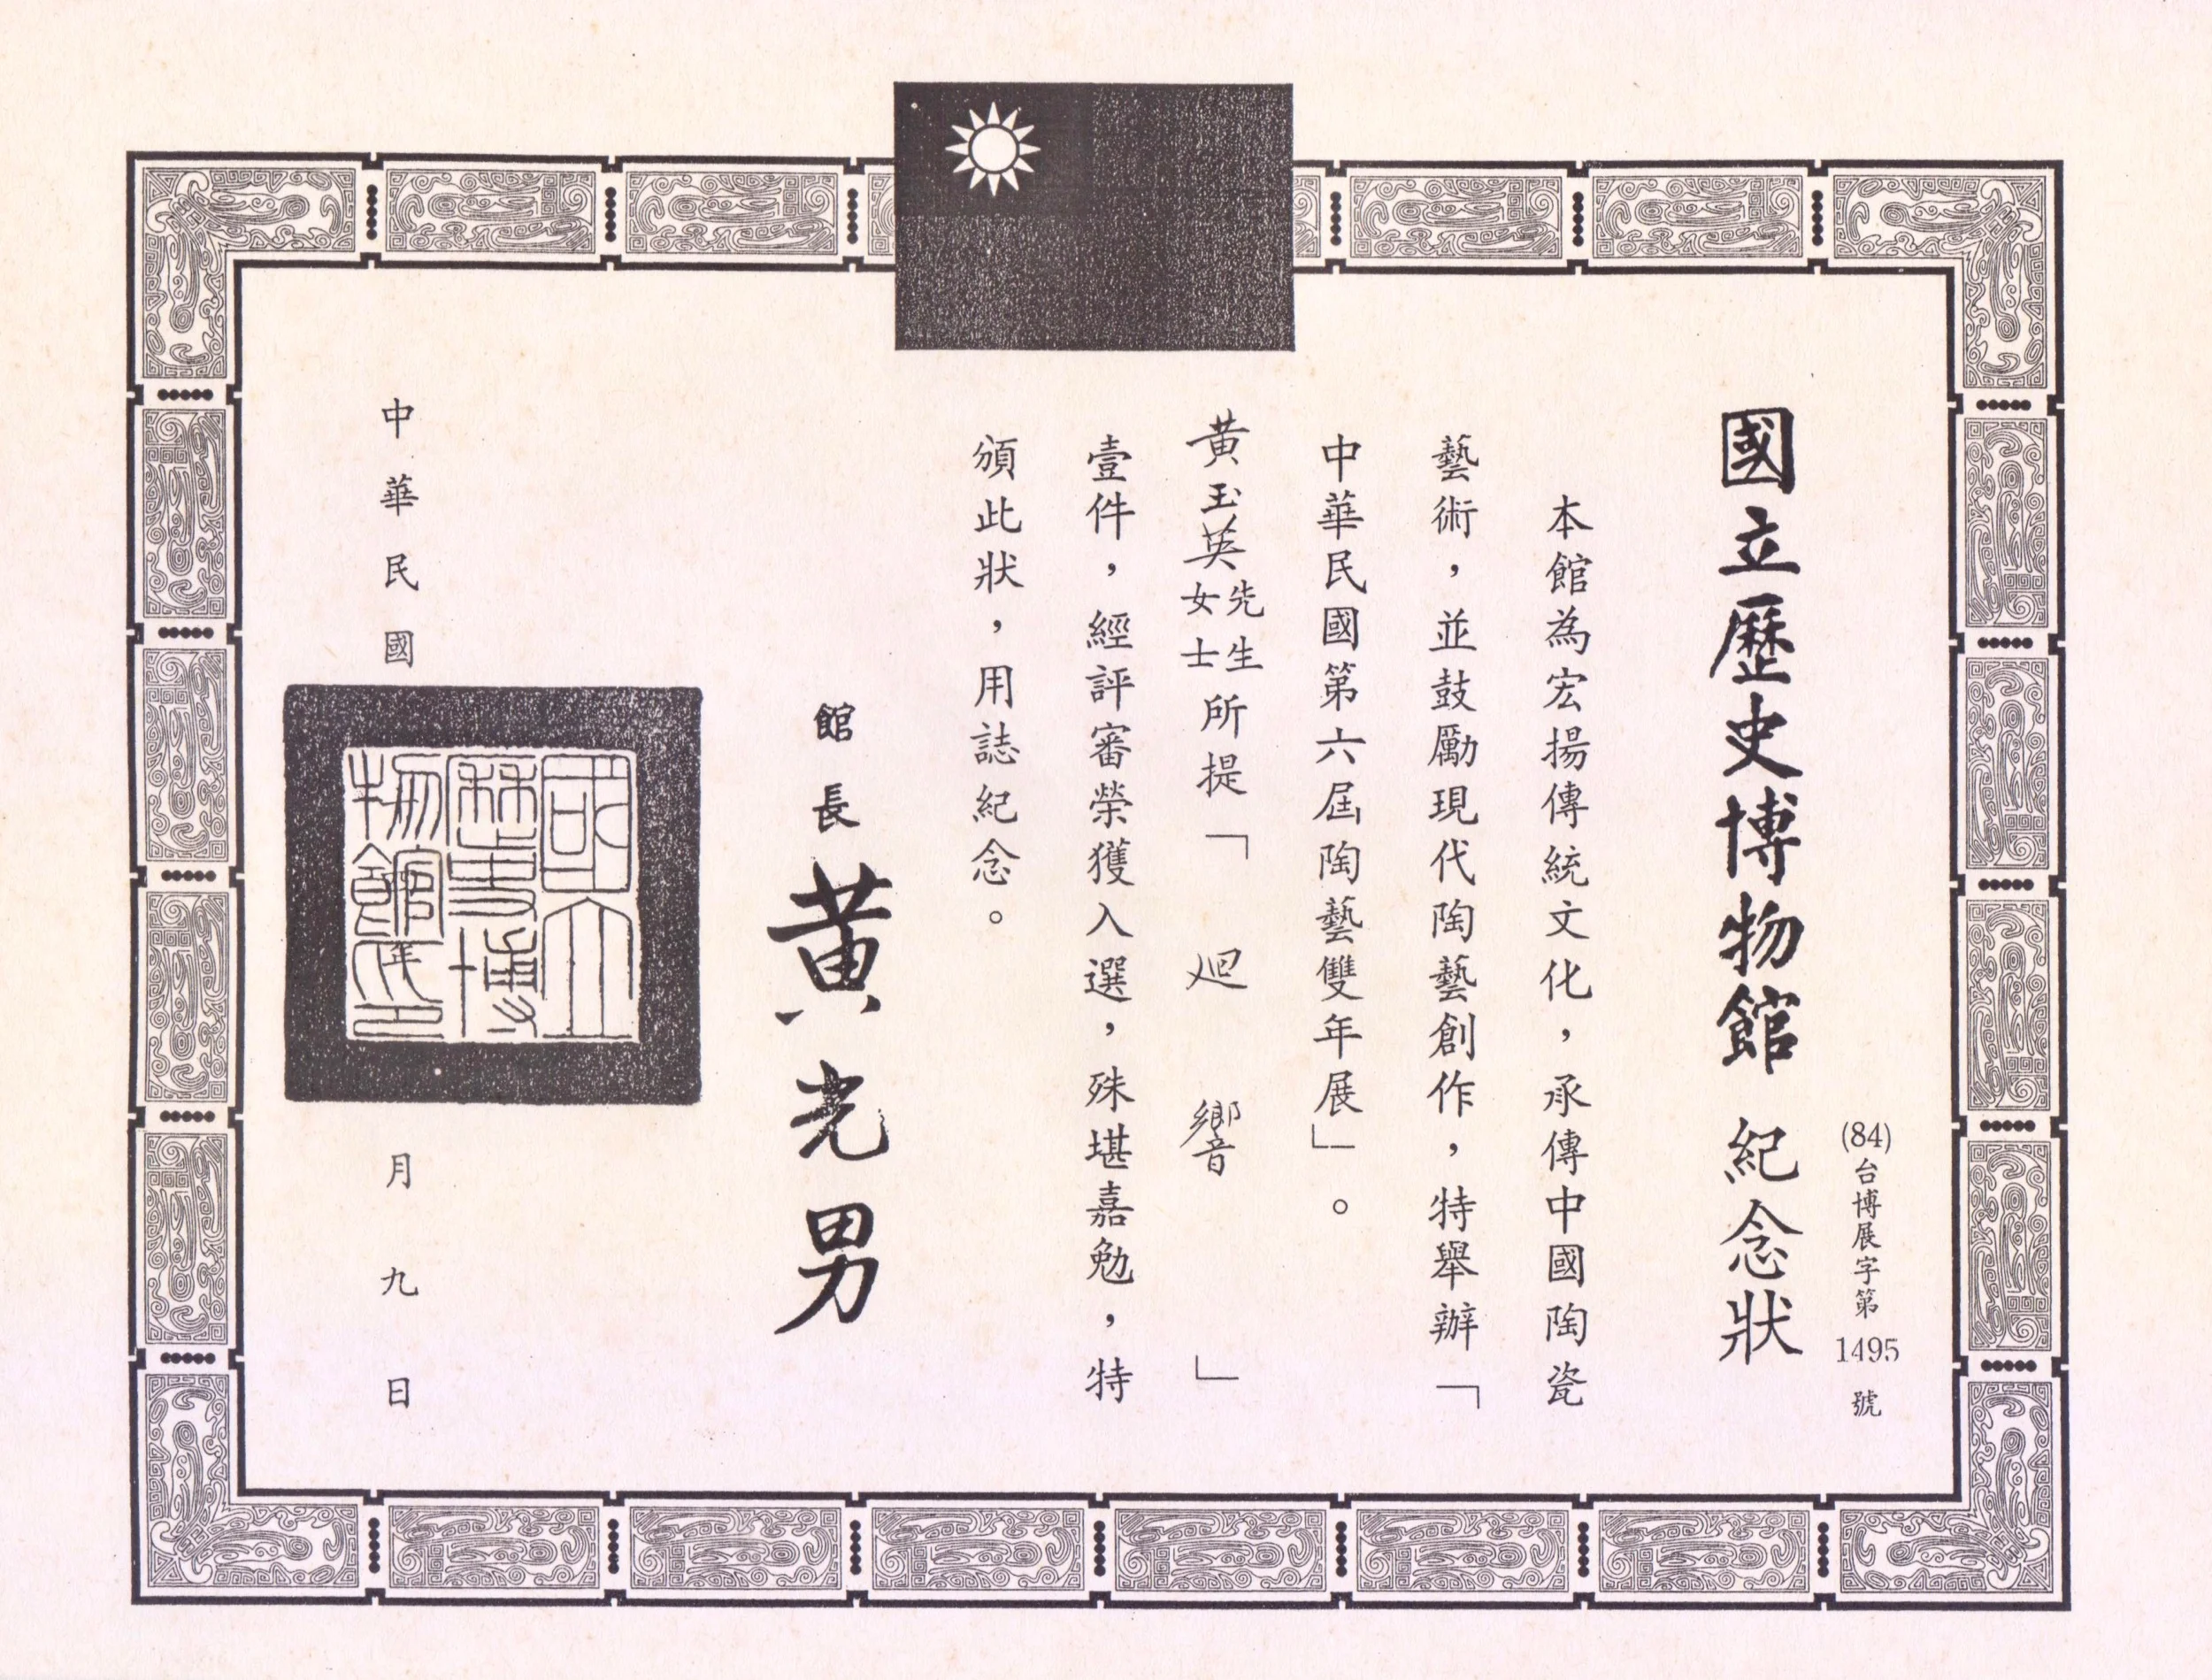 (84)台博展字第1495號
國立歷史博物館 紀念狀
本館為宏揚傳統文化，承傳中國陶瓷
藝術，並鼓勵現代陶藝創作，特舉辦「
中華民國第六屆陶藝雙年展」。
黃玉英先生女士所提「廻響」
壹件，經評審榮獲入選，殊堪嘉勉，特
頒此狀，用誌紀念。
館長 黃光男
中華民國 年 月九日
國立歷史博物館印